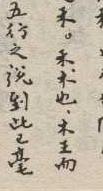 禾。禾木也、木王而
五行之說、到此已毫